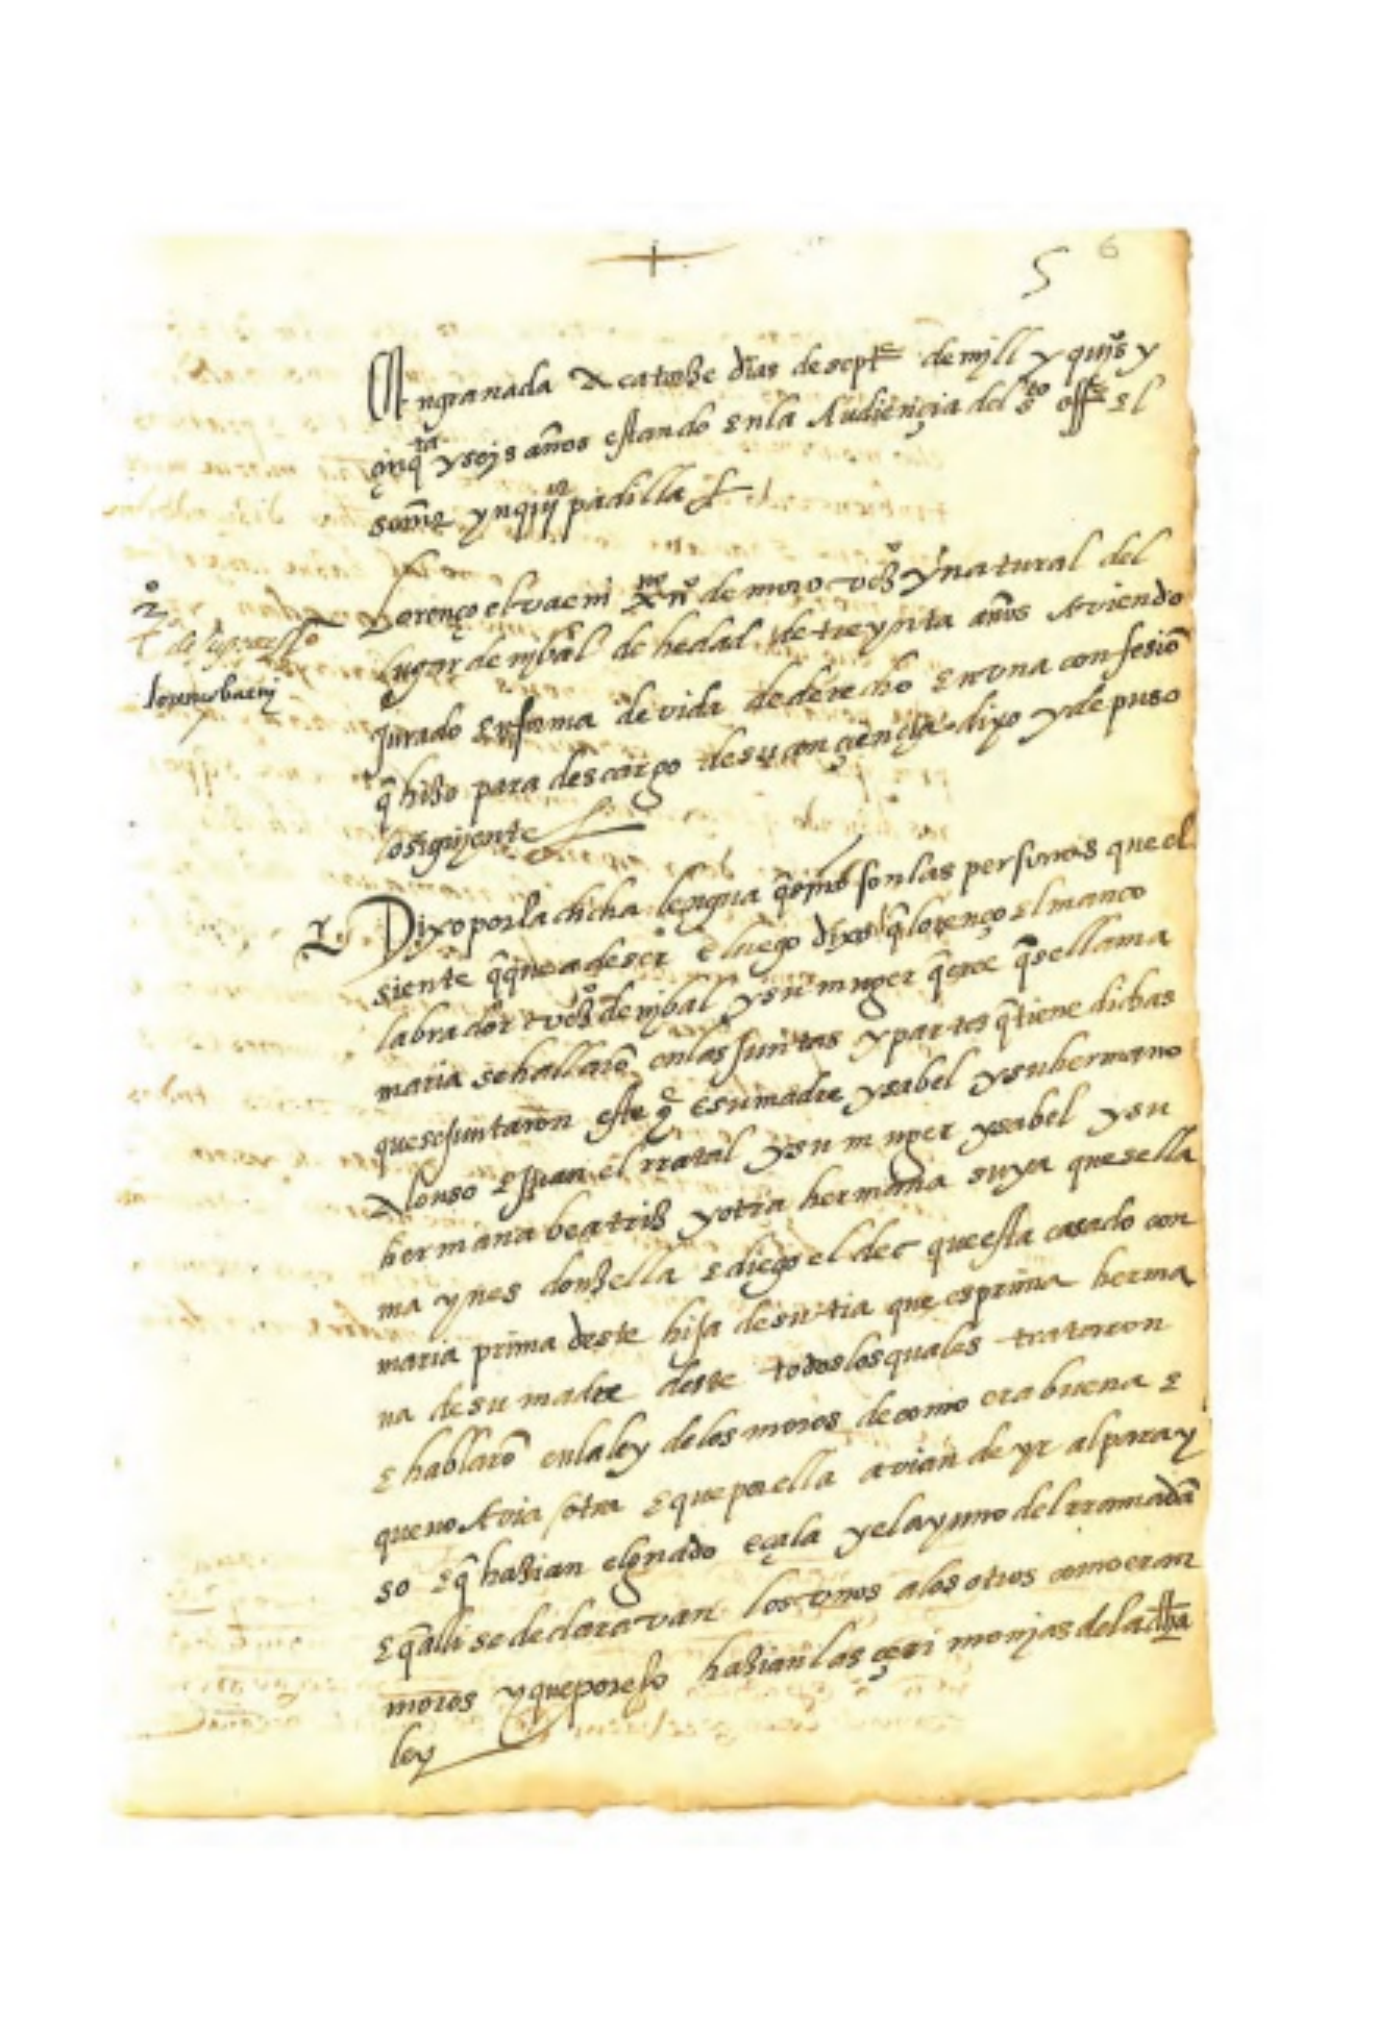 5 6
En granada A catorze dias de sept^e de mjll y quis y
çinq^ta y seys años estando En la Audiençia del s^to off^o El
señor ynqor padilla
Lorenço el vaeni xº nº de moro vezº y natural del
2º
lugar de njbal de hedad de treynta años Aviendo
lorenço baeni
jurado En forma devida de derecho En una confesiō
q̄ hizo para descargo de su conçiençia dixo y depuso
lo sigujente
1. Dixo por la dicha lengua q̄ son las personas que el
siente q̄ e luego dixo q̄ lorenço El manco
labrador vezº de njbal y su muger q̄ cree q̄ se llama
maria se hallarō en las juntas y partes q̄ tiene dichas
que se juntaron este q̄ e su madre ysabel y su hermano
Alonso E juan el rratal y su muger ysabel y su
hermana beatriz y otra hermana suya que se lla
ma ynes donzella E diego el dec que esta casado con
maria prima deste hija de su tia que es prima herma
na de su madre deste todos los quales trataron
E hablarō en la ley de los moros de como era buena E
que no Avia otra E que por ella avian de yr al paray
so E q̄ hazian el guado e çala y el ayuno del rramadā
E q̄ alli se declaravan los unos a los otros como eran
moros y que por eso hazian las çerimonjas de la dha
ley